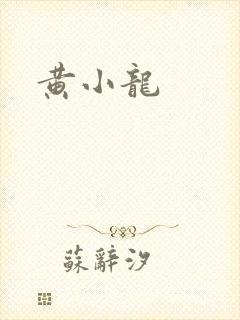 黄小龍
蘇辭汐